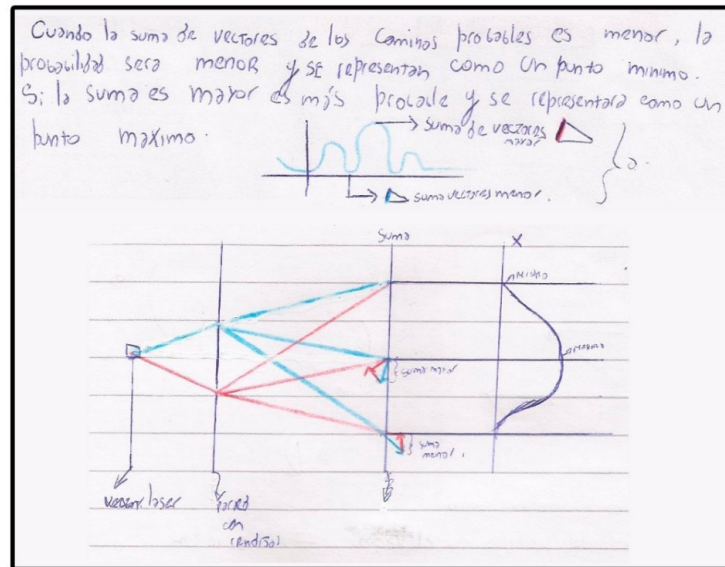 Cuando la suma de vectores de los caminos probables es menor, la
probabilidad sera menor y se representan como un punto minimo.
Si la suma es mayor es más probable y se representará como un
punto maximo.
suma de vectores
mayor
suma vectores menor.
Suma
X
Maximo
suma mayor
suma
menor
laser
Pared
con